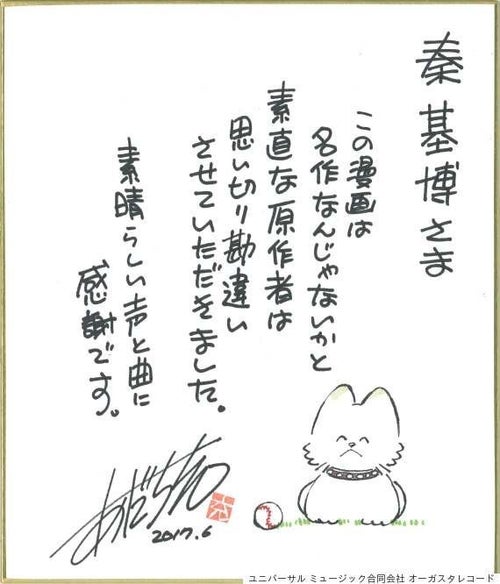 秦基博さま
この漫画は
名作なんじゃないかと
素直な原作者は
思い切り勘違い
させていただきました。
素晴らしい声と曲に
感謝です。
あだち充
2017.6
ユニバーサル ミュージック合同会社 オーガスタレコード